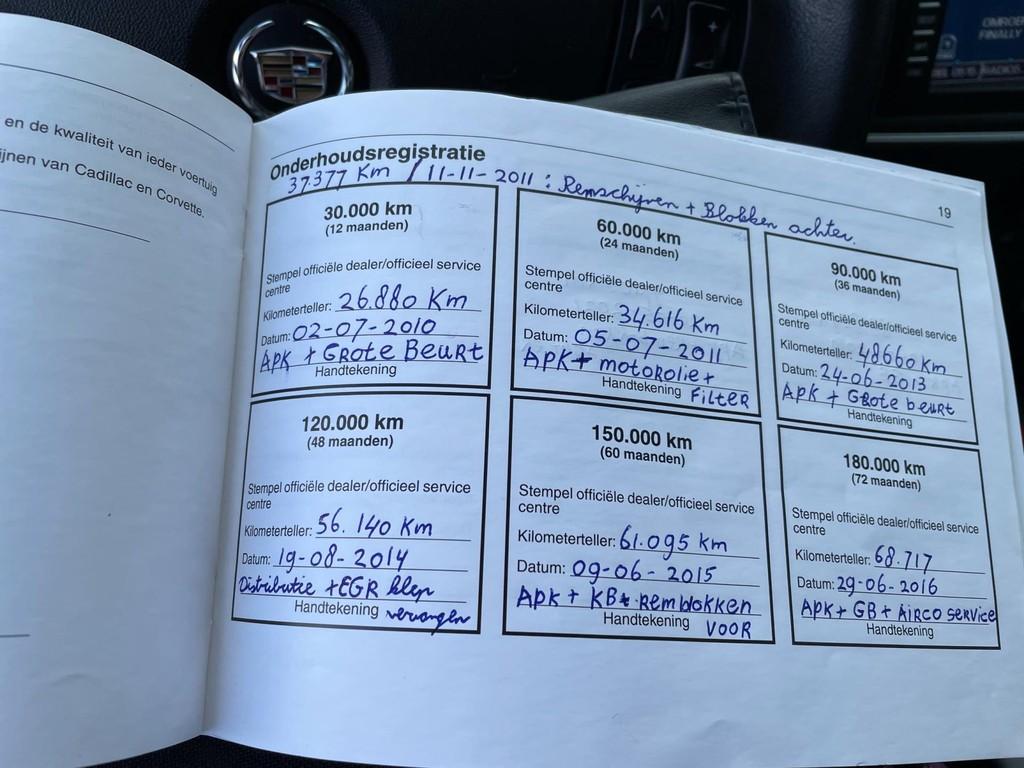 en de kwaliteit van ieder voertuig
ijnen van Cadillac en Corvette.
Onderhoudsregistratie
37.377 Km / 11-11-2011 : Remschijven + Blokken achter.
19
30.000 km
(12 maanden)
Stempel officiële dealer/officieel service
centre
Kilometerteller: 26.880 Km
Datum: 02-07-2010
APK + GROTE BEURT
Handtekening
60.000 km
(24 maanden)
Stempel officiële dealer/officieel service
centre
Kilometerteller: 34.616 Km
Datum: 05-07-2011
APK + motorolie +
Handtekening FILTER
90.000 km
(36 maanden)
Stempel officiële dealer/officieel service
centre
Kilometerteller: 48660 Km
Datum: 24-06-2013
APK + Grote beurt
Handtekening
120.000 km
(48 maanden)
Stempel officiële dealer/officieel service
centre
Kilometerteller: 56.140 Km
Datum: 19-08-2014
Distributie + EGR klep
Handtekening vervangen
150.000 km
(60 maanden)
Stempel officiële dealer/officieel service
centre
Kilometerteller: 61.095 km
Datum: 09-06-2015
APK + KB + Remblokken
Handtekening VOOR
180.000 km
(72 maanden)
Stempel officiële dealer/officieel service
centre
Kilometerteller: 68.717
Datum: 29-06-2016
APK + GB + AIRCO SERVICE
Handtekening
OMROE
FINALLY